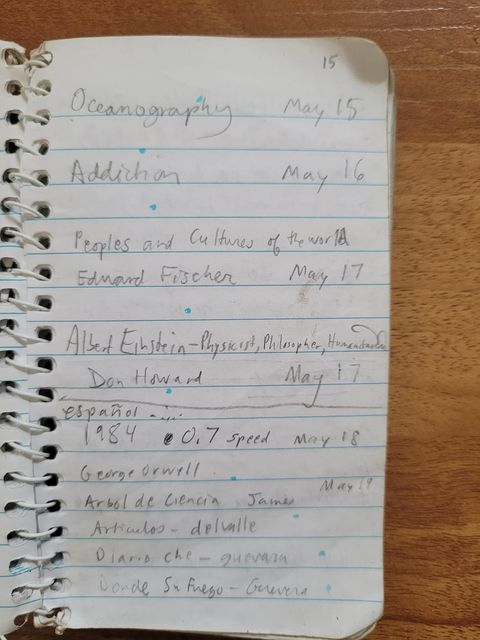 15
Oceanography May 15
Addiction May 16
Peoples and Cultures of the world
Edward Fischer May 17
Albert Einstein - Physicist, Philosopher, Humanitarian
Don Howard May 17
español ....
1984 0.7 speed May 18
George Orwell
May 19
Arbol de Ciencia James
Articulos - delvalle
Diario che - guevara
Donde Su Fuego - Guevera